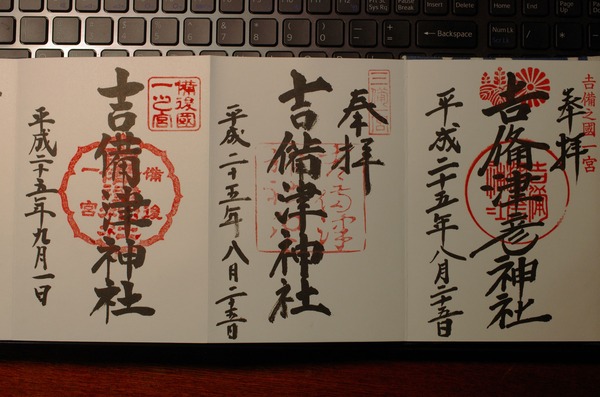 Pause
Break
Insert
Delete
Home
Page
Up
Backspace
NumLk
吉備之國一宮
奉拝
吉備津彦神社
平成二十五年八月二十五日
三備一宮
奉拝
吉備津神社
平成二十五年八月二十五日
備後國
一之宮
吉備津神社
備後
一宮
平成二十五年九月一日